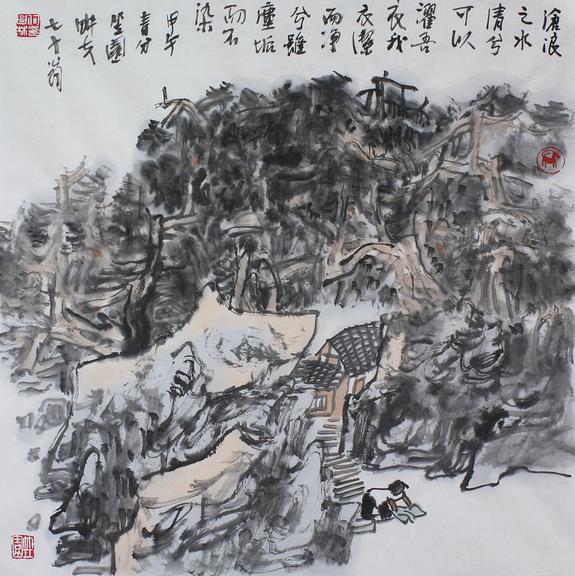 滄浪
之水
清兮
可以
濯吾
衣我
衣潔
而淨
兮雖
塵垢
而不
染
甲午
春分
園
畊夫
七十翁